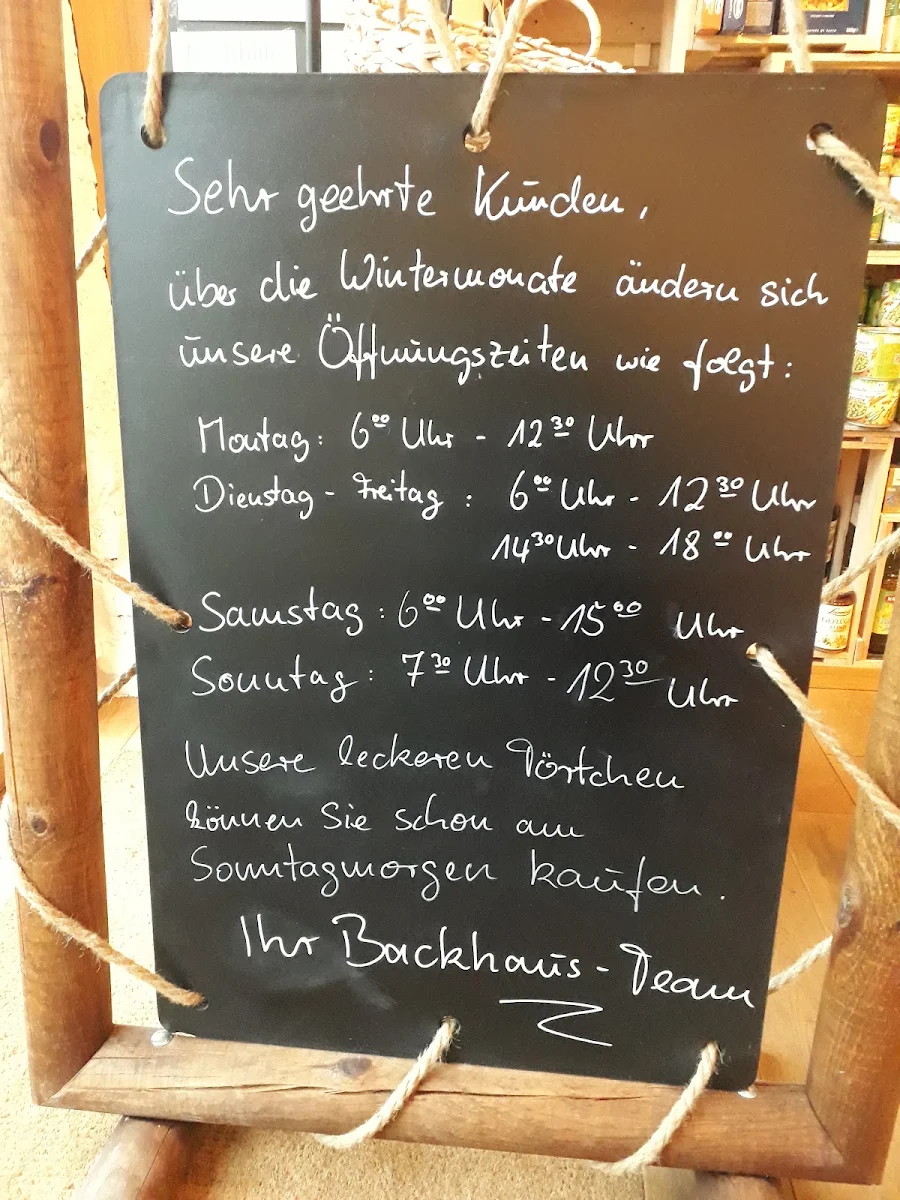 Sehr geehrte Kunden,
über die Wintermonate ändern sich
unsere Öffnungszeiten wie folgt:
Montag: 6⁰⁰ Uhr - 12³⁰ Uhr
Dienstag - Freitag : 6⁰⁰ Uhr - 12³⁰ Uhr
14³⁰ Uhr - 18⁰⁰ Uhr
Samstag : 6⁰⁰ Uhr - 15⁰⁰ Uhr
Sonntag : 7³⁰ Uhr - 12³⁰ Uhr
Unsere leckeren Törtchen
können Sie schon am
Sonntagmorgen kaufen.
Ihr Backhaus-Team